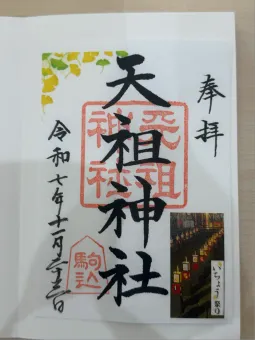 奉拝
天祖神社
天祖
神社
令和七年十一月二十二日
駒込
いちょう祭り